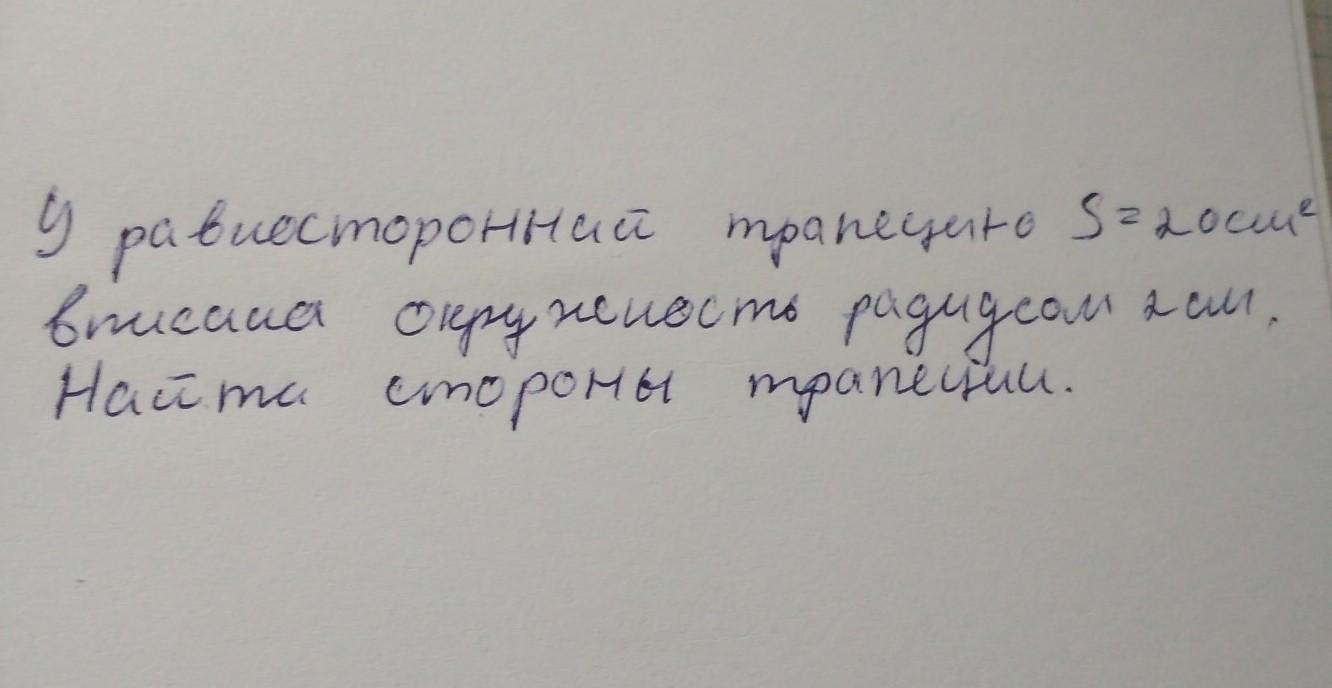 У равносторонний трапецию S=20см²
вписана окружность радиусом 2см.
Найти стороны трапеции.